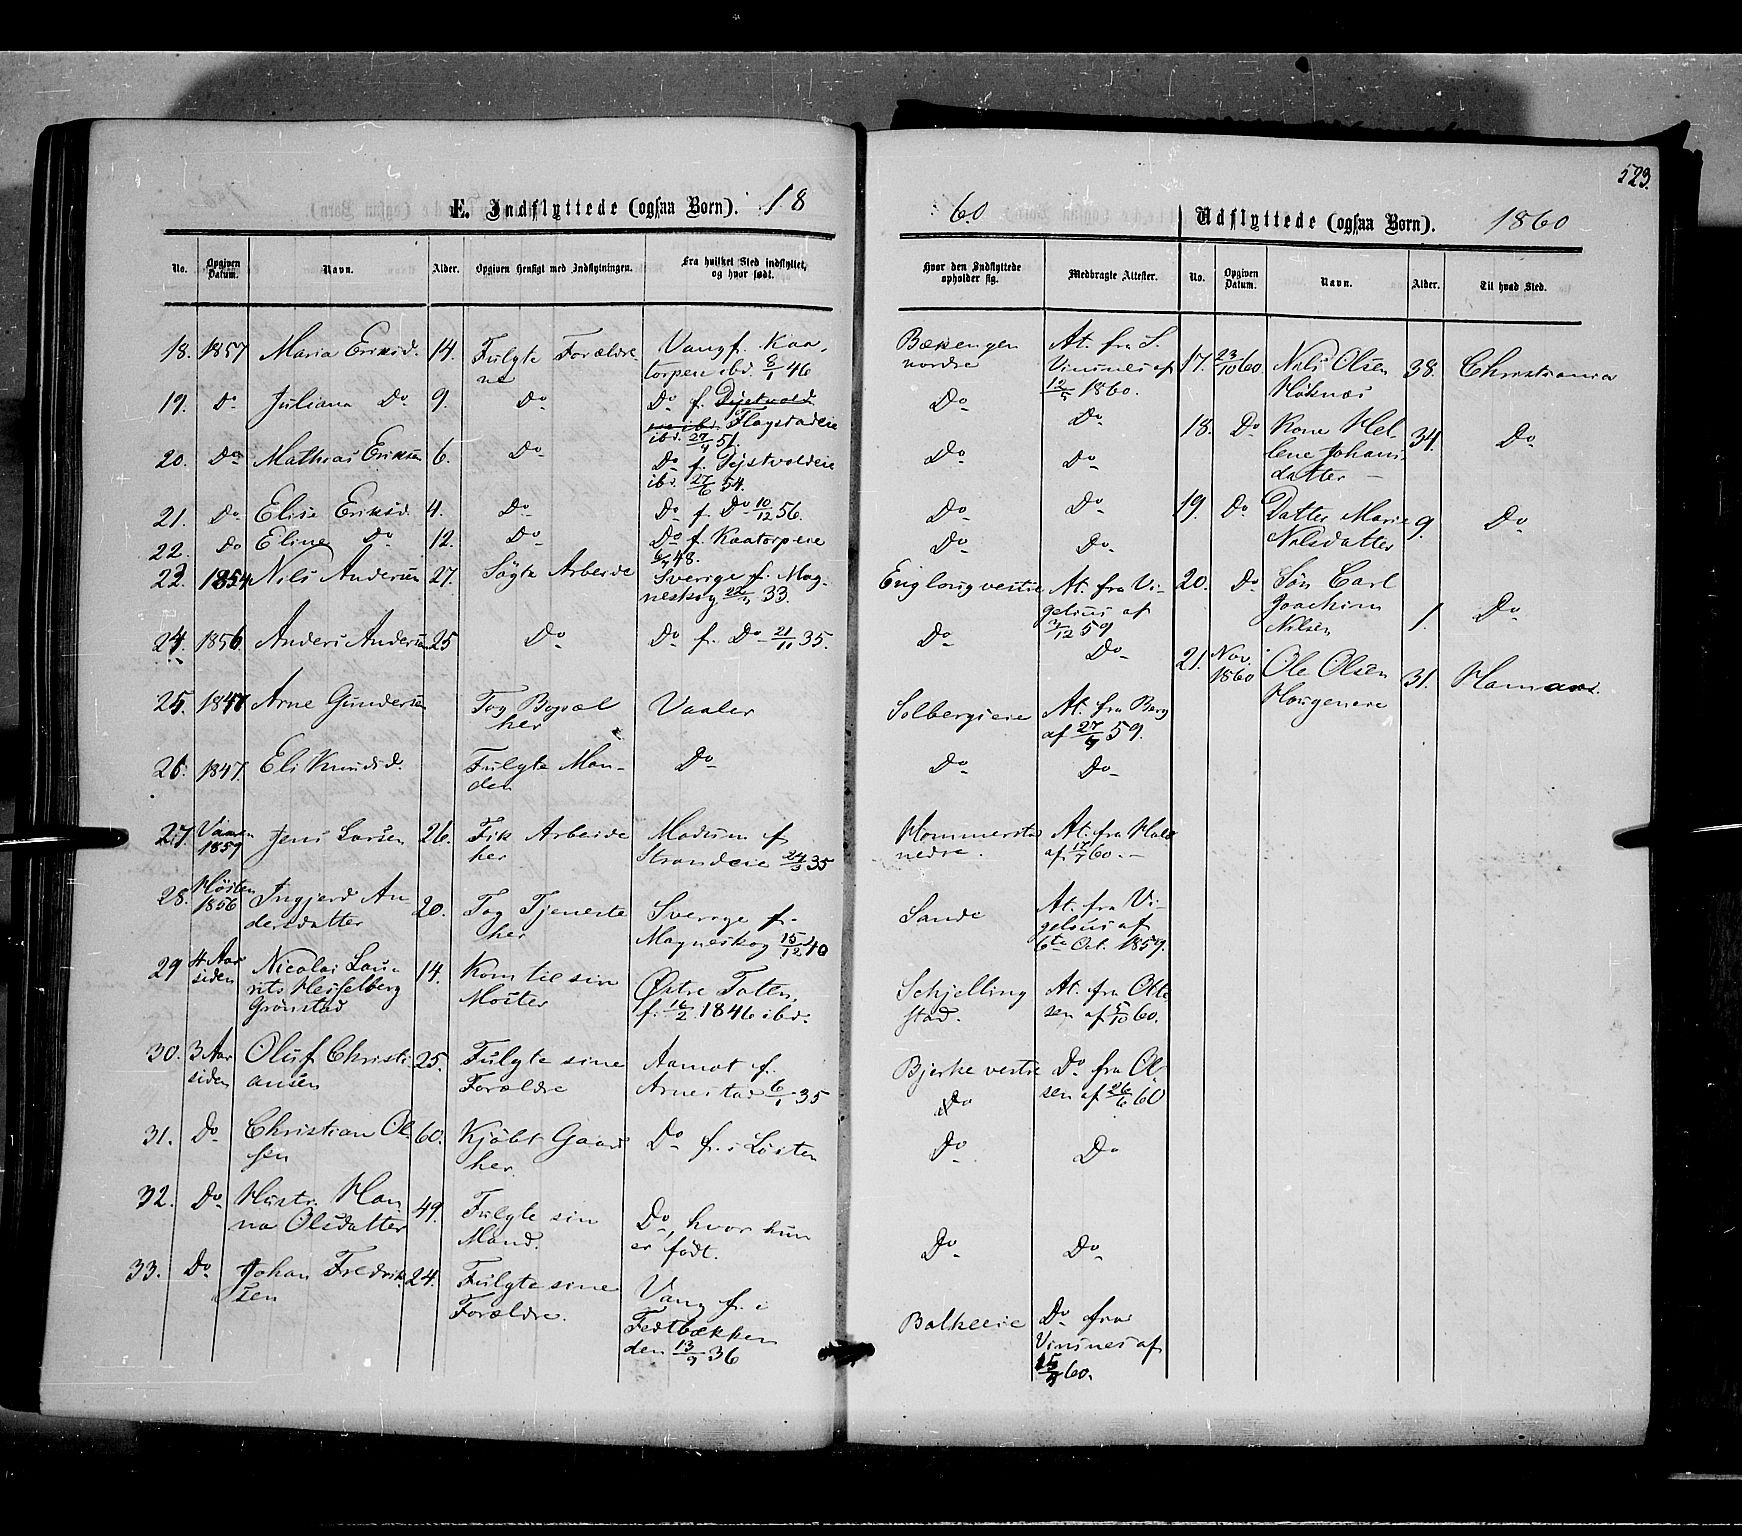 523.
E. Indflyttede (ogsaa Børn). 18
60
Udflyttede (ogsaa Børn). 1860
No. Opgiven Datum. Navn. Alder. Opgiven Hensigt med Indflytningen. Fra hvilket Sted indflyttet, og hvor født.
Hvor den Indflyttede opholder sig. Medbragte Attester. No. Opgiven Datum. Navn. Alder. Til hvad Sted.
18. 1857 Maria Eriksd. 14. Fulgte Forældre
ne
Vang f. Kaa
torpeie ibd. 8/1 46
Bækengen
nordre
At. fra S.
Vinsnes af
12/5 1860.
19. Do Juliana Do 9. Do Do f.
ibd. Flagstadeie
ibd. 27/4 51.
Do Do
20. Do Mathias Eriksen 6. Do Do f. Tejstvoldeie
ibd. 27/6 54.
Do Do
21. Do Elise Eriksd. 4. Do Do f. Do 10/12 56.
Do Do
22. Do Eline Do 12. Do Do f. Kaatorpeie
48.
Do Do
1854 Nils Andersen 27. Søgte Arbeide Sverige f. Mag
neskog 33.
Englaug vestre At. fra Vi
gelsius af
3/12 59
24. 1856 Anders Andersen 25 Do Do f. Do 21/11 35.
Do Do
25. 1847 Arne Gundersen Tog Bopæl
her
Vaaler
Solbergseie At. fra Berg
af 27/9 59.
26. 1847. Eli Knudsd. Fulgte Man
den
Do
Do Do
27. Vaaren
1859 Jens Larsen 26. Fik Arbeide
her
Modum f.
Strandeie 24/3 35
Hommerstad
nedre.
At. fra
af 17/7 60.
28. Høsten
1856 Ingjerd An
dersdatter 20. Tog Tjeneste
her
Sverige f.
Magneskog 15/12 40
Sande At. fra Vi
gelsius af
6te Oct. 1859.
29 4 Aar
siden Nicolai Lau
rits Hesselberg
Grønstad 14. Kom til sin
Moster
Østre Toten,
f. 16/2 1846 ibd.
Schjelling
stad.
At. fra Otte
sen af 5/10 60.
30. 3 Aar
siden Oluf Christi
ansen 25. Fulgte sine
Forældre
Aamot f.
Arnestad 6/1 35
Bjerke vestre
Do
Do fra Ol
sen af 26/6 60
31. Do Christian Ol
sen 60. Kjøbt Gaard
her
Do f. i Løiten
Do Do
32. Do Hustr. Han
na Olsdatter 49. Fulgte sin
Mand.
Do, hvor hun
er født.
Do Do
33. Do Johan Fredrik
sen 24. Fulgte sine
Forældre.
Vang f. i
Fedtbækken
den 13/9 36
Balkeeie Do fra
Vinsnes af
60.
17. 23/10 60 Nils Olsen
Høknæs 38. Christiania
18. Do Kone Hel
lene Johans
datter 34. Do
19. Do Datter Marie
Nilsdatter 9. Do
20. Do Søn Carl
Joachim
Nilsen 1. Do
21. Nov.
1860 Ole Olsen
Haugeneie 31. Hamar.